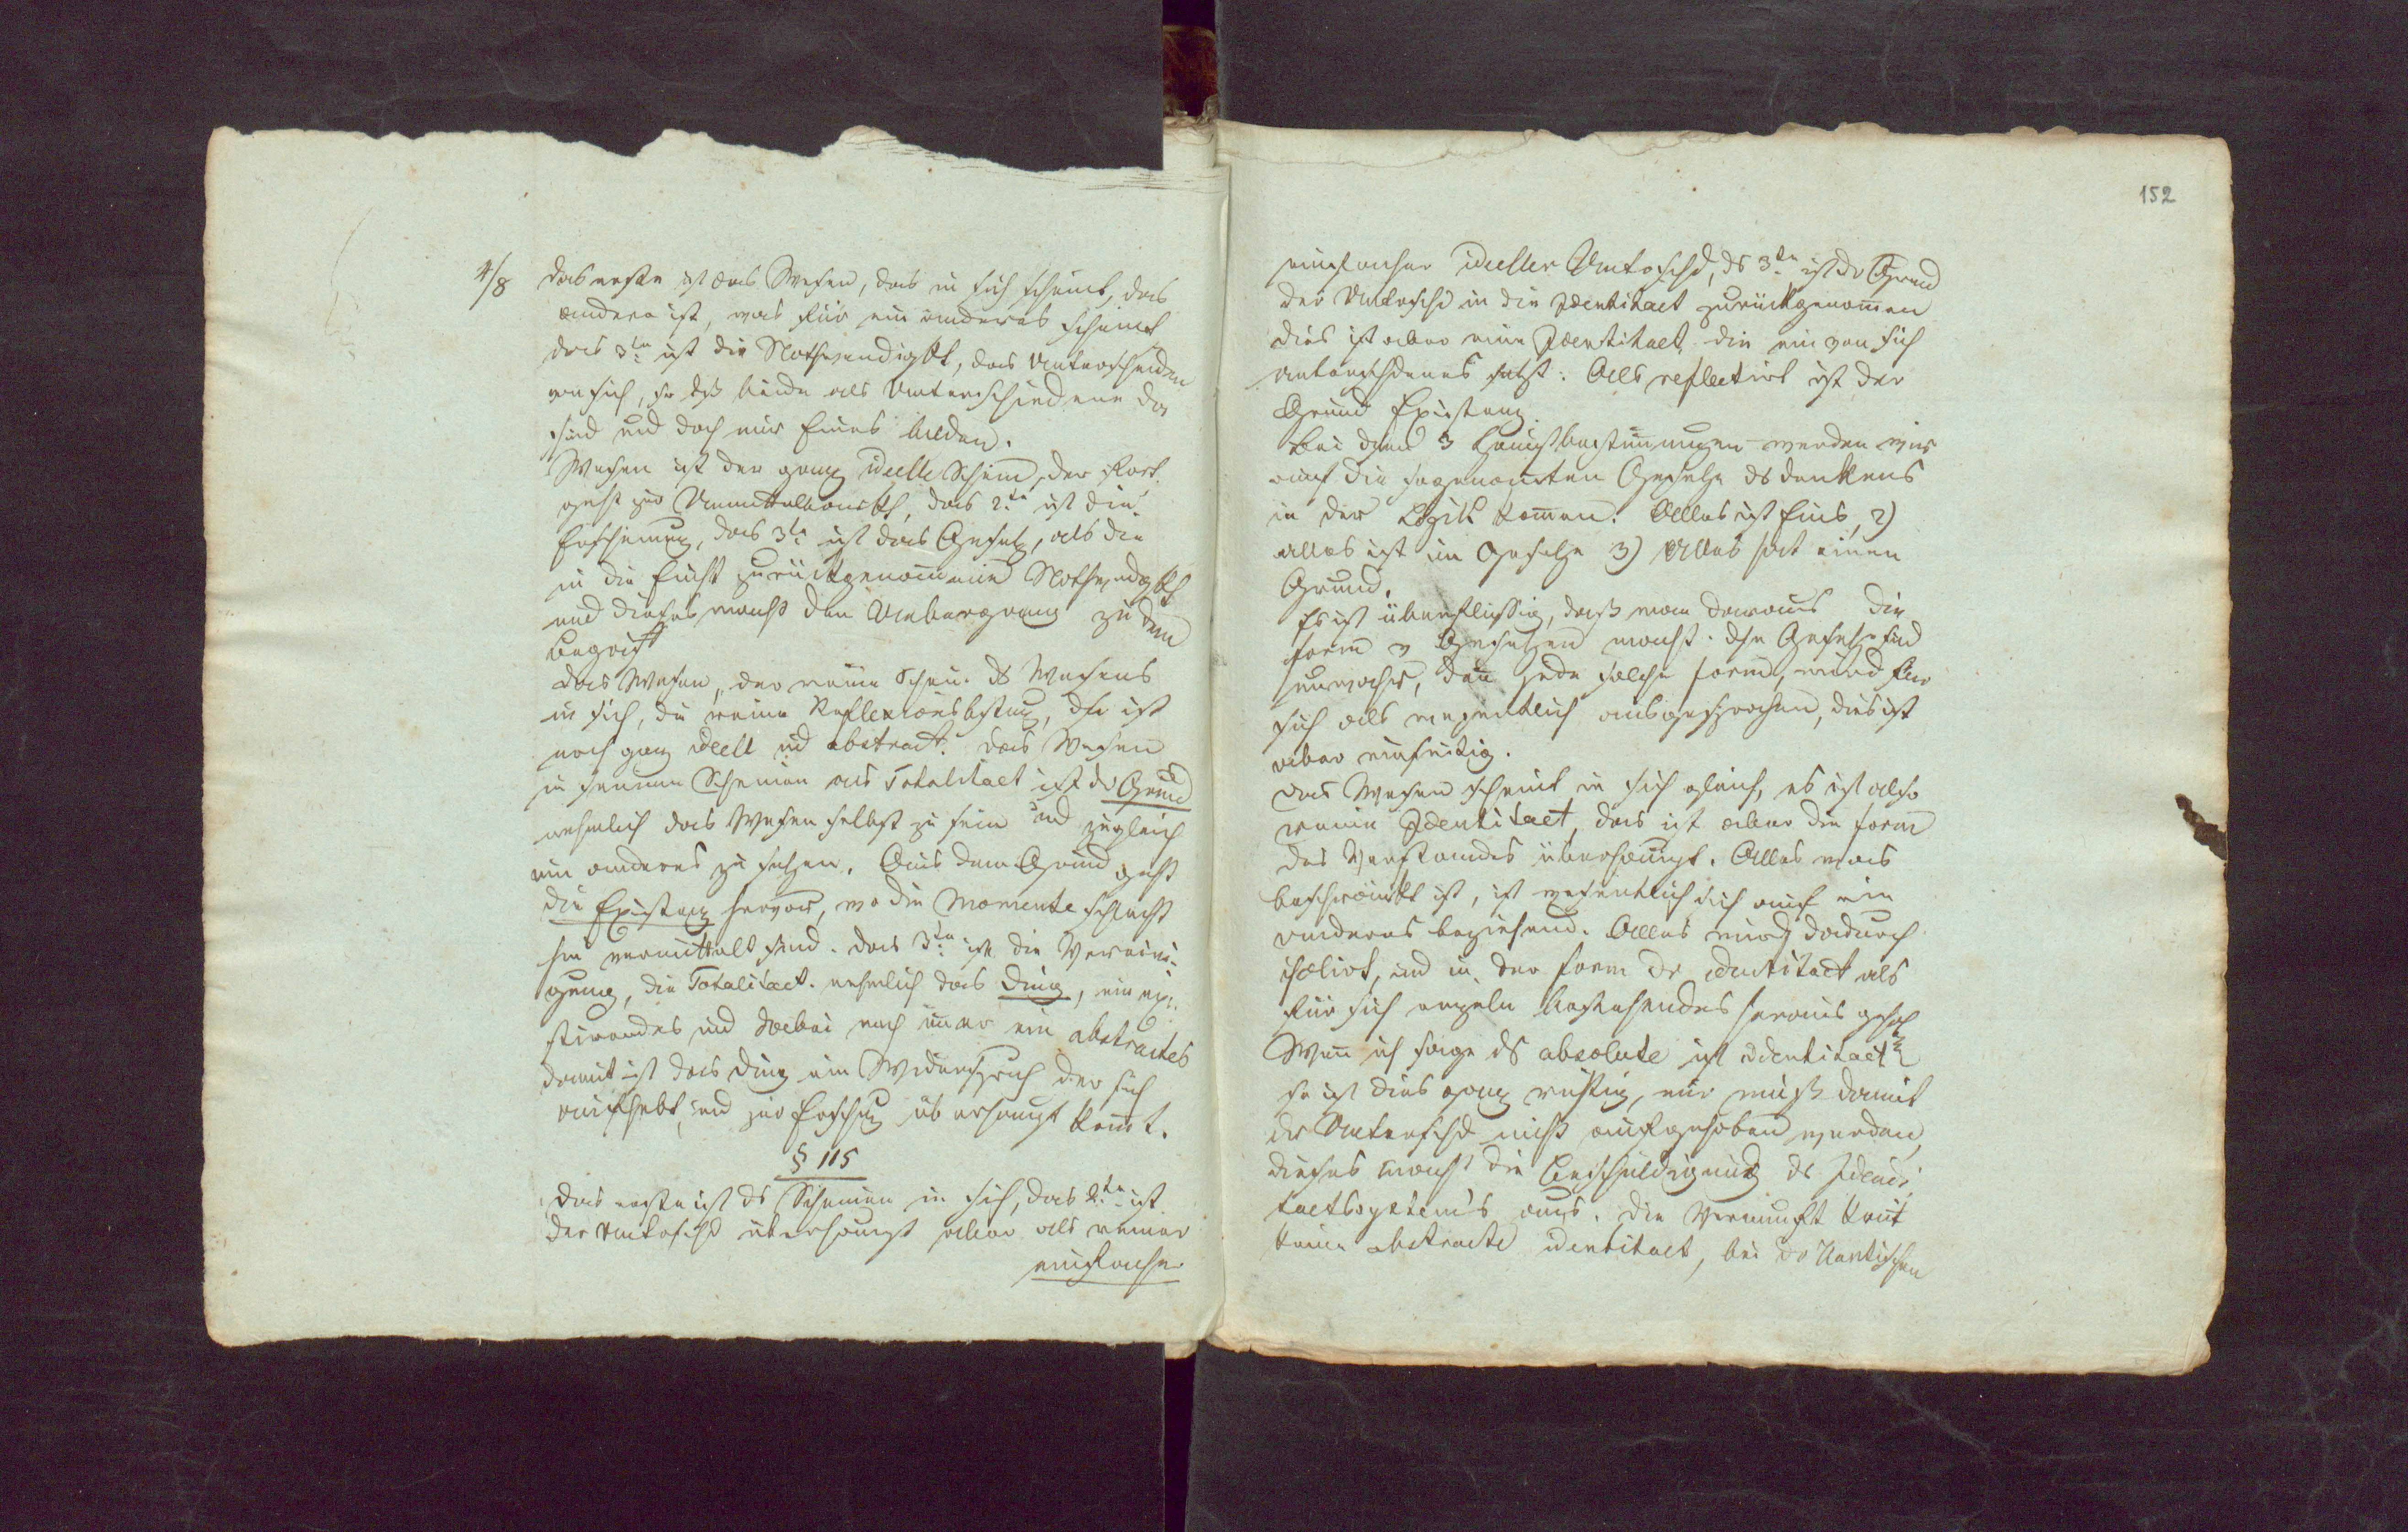 4/8
das erste ist das Wesen, das in sich scheint, das
andere ist, was für ein anderes scheint
das 3te ist die Nothwendigkt, das Unterscheiden
von sich, so dß beide als Unterschiedene da
sind und doch nur Eines bilden.
Wesen ist der ganz ideelle Schein, der fort
geht zur Unmittelbarkt, das 2te ist die
Erscheinung, das 3te ist das Gesetz, als die
in die Einht zurückgenommene Nothwendgkt
und dieses macht den Uebergang zu dem
Begriff
das Wesen, der reine Schein ds Wesens
in sich, die reine Reflexionsbstmg, die ist
noch ganz ideell und abstract. das Wesen
in seinem Scheinen als Totalitaet ist dr Grund
nehmlich das Wesen selbst zu sein und zugleich
ein anderes zu setzen. Aus dem Grund geht
die Existenz hervor, wo die Momente schlecht
hin vermittelt sind. das 3te ist die Vereini-
gung, die Totalitaet. nehmlich das Ding, ein exi-
stirendes und dabei noch immer ein abstractes
damit ist das Ding ein Widerspruch der sich
aufhebt, und zur Erschng überhaupt kommt.
§ 115
das erste ist ds Scheinen in sich, das 2te ist
der Untrschd überhaupt aber als reiner
einfacher
152
einfacher ideeller Untrschd, ds 3te ist dr Grund
der Untrschd in die Identitaet zurückgenommen
dies ist aber eine Identitaet die ein von sich
unterschdenes setzt: Als reflectirt ist der
Grund Existenz.
bei dsen 3 Hauptbestimmungen werden wir
auf die sogenannten Gesetze ds denkens
in der Logik kommen. Alles ist Eins, 2)
alles ist im Gesetze 3) Alles hat einen
Grund.
Es ist überflüssig, daß man daraus die
Form v Gesetzen macht. dse Gesetze sind
unwahr, denn jede solche Form, wird für
sich als wesentlich ausgesprochen, dies ist
aber einseitig.
das Wesen scheint in sich gleich, es ist also
reine Identitaet, das ist aber die Form
des Verstandes überhaupt. Alles was
beschränkt ist, ist wesentlich sich auf ein
anderes beziehend. Alles wird dadurch
isolirt, und in der Form dr identitaet als
für sich einzeln bestehendes heraus gehoben
Wenn ich sage ds absolute ist identitaet
so ist dies ganz richtig, nur muß damit
dr Unterschd nicht aufgehoben werden,
dieses macht die Beschuldigung ds Identi-
taetssystem's aus. die Vernunft kennt
keine abstracte identitaet, bei dr Kantischen